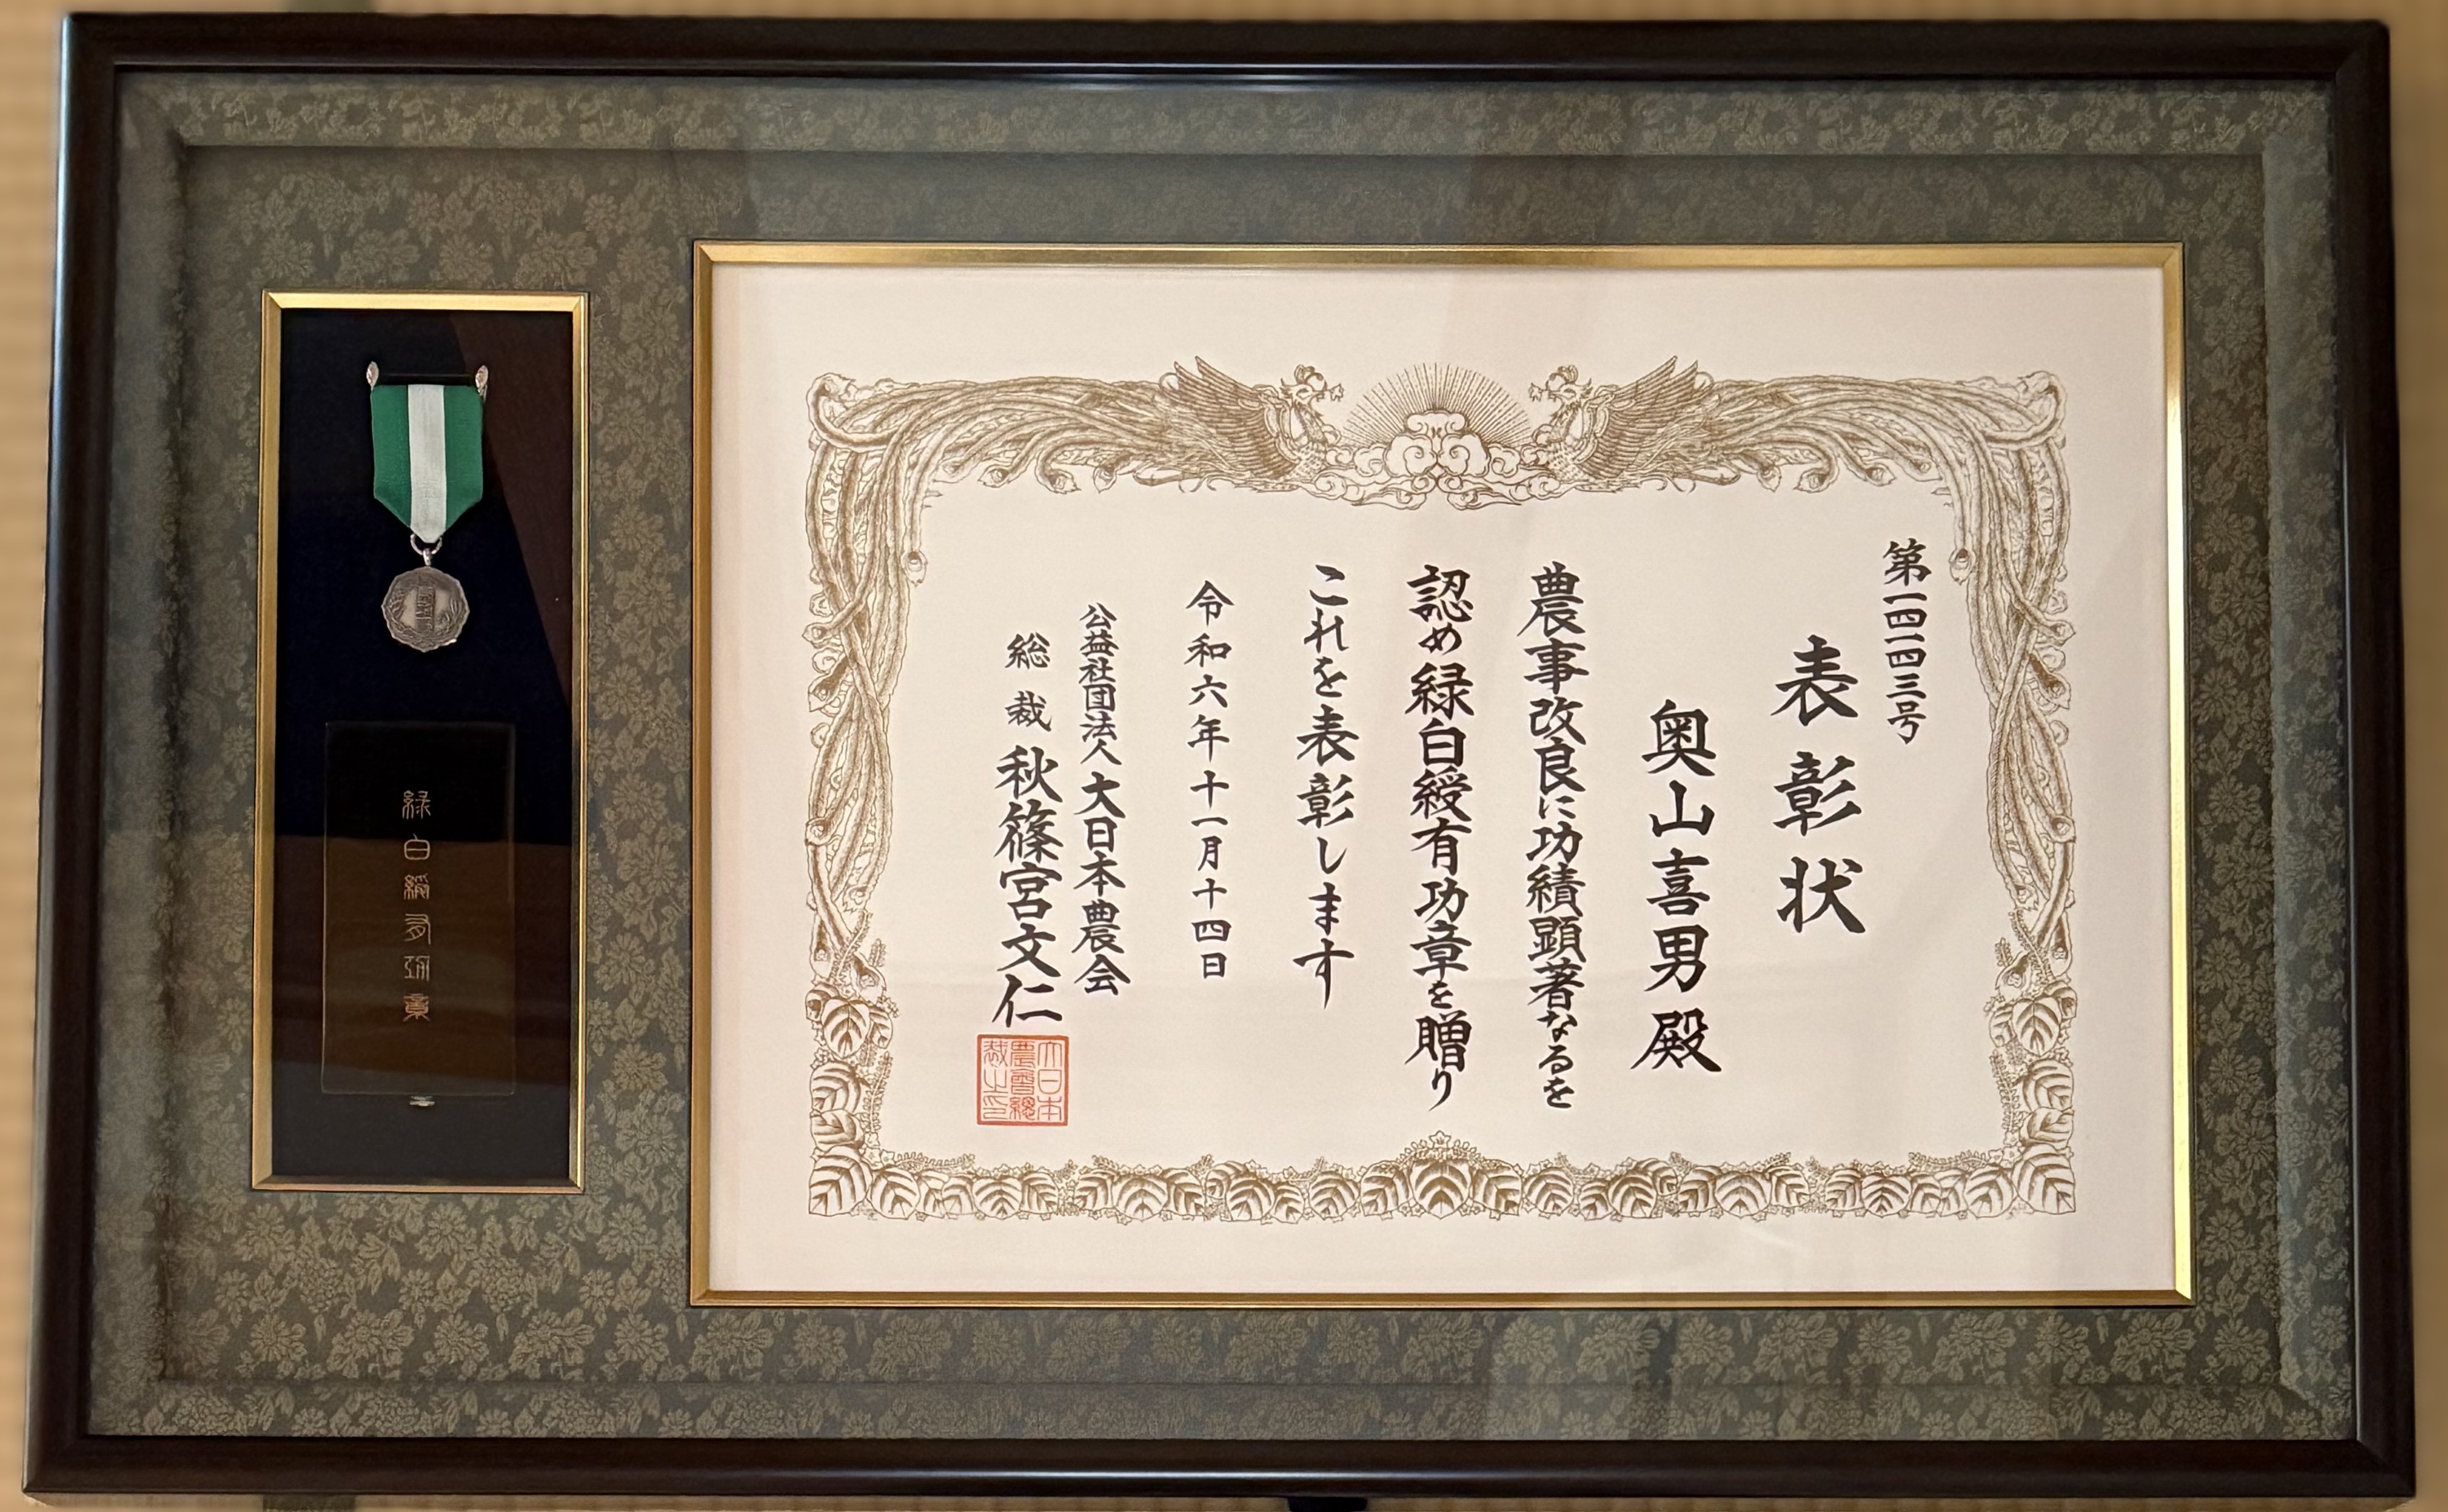 第一四一四三号
表彰状
奥山喜男殿
農事改良に功績顕著なるを
認め緑白綬有功章を贈り
これを表彰します
令和六年十一月十四日
公益社団法人大日本農会
総裁秋篠宮文仁
大日本
農會總
裁之印
緑白綬有功章